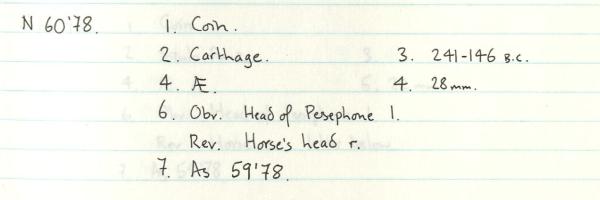 N 60'78. 1. Coin.
2. Carthage. 3. 241-146 B.C.
4. Æ. 4. 28mm.
6. Obv. Head of Pesephone l.
Rev. Horse's head r.
7. As 59'78.